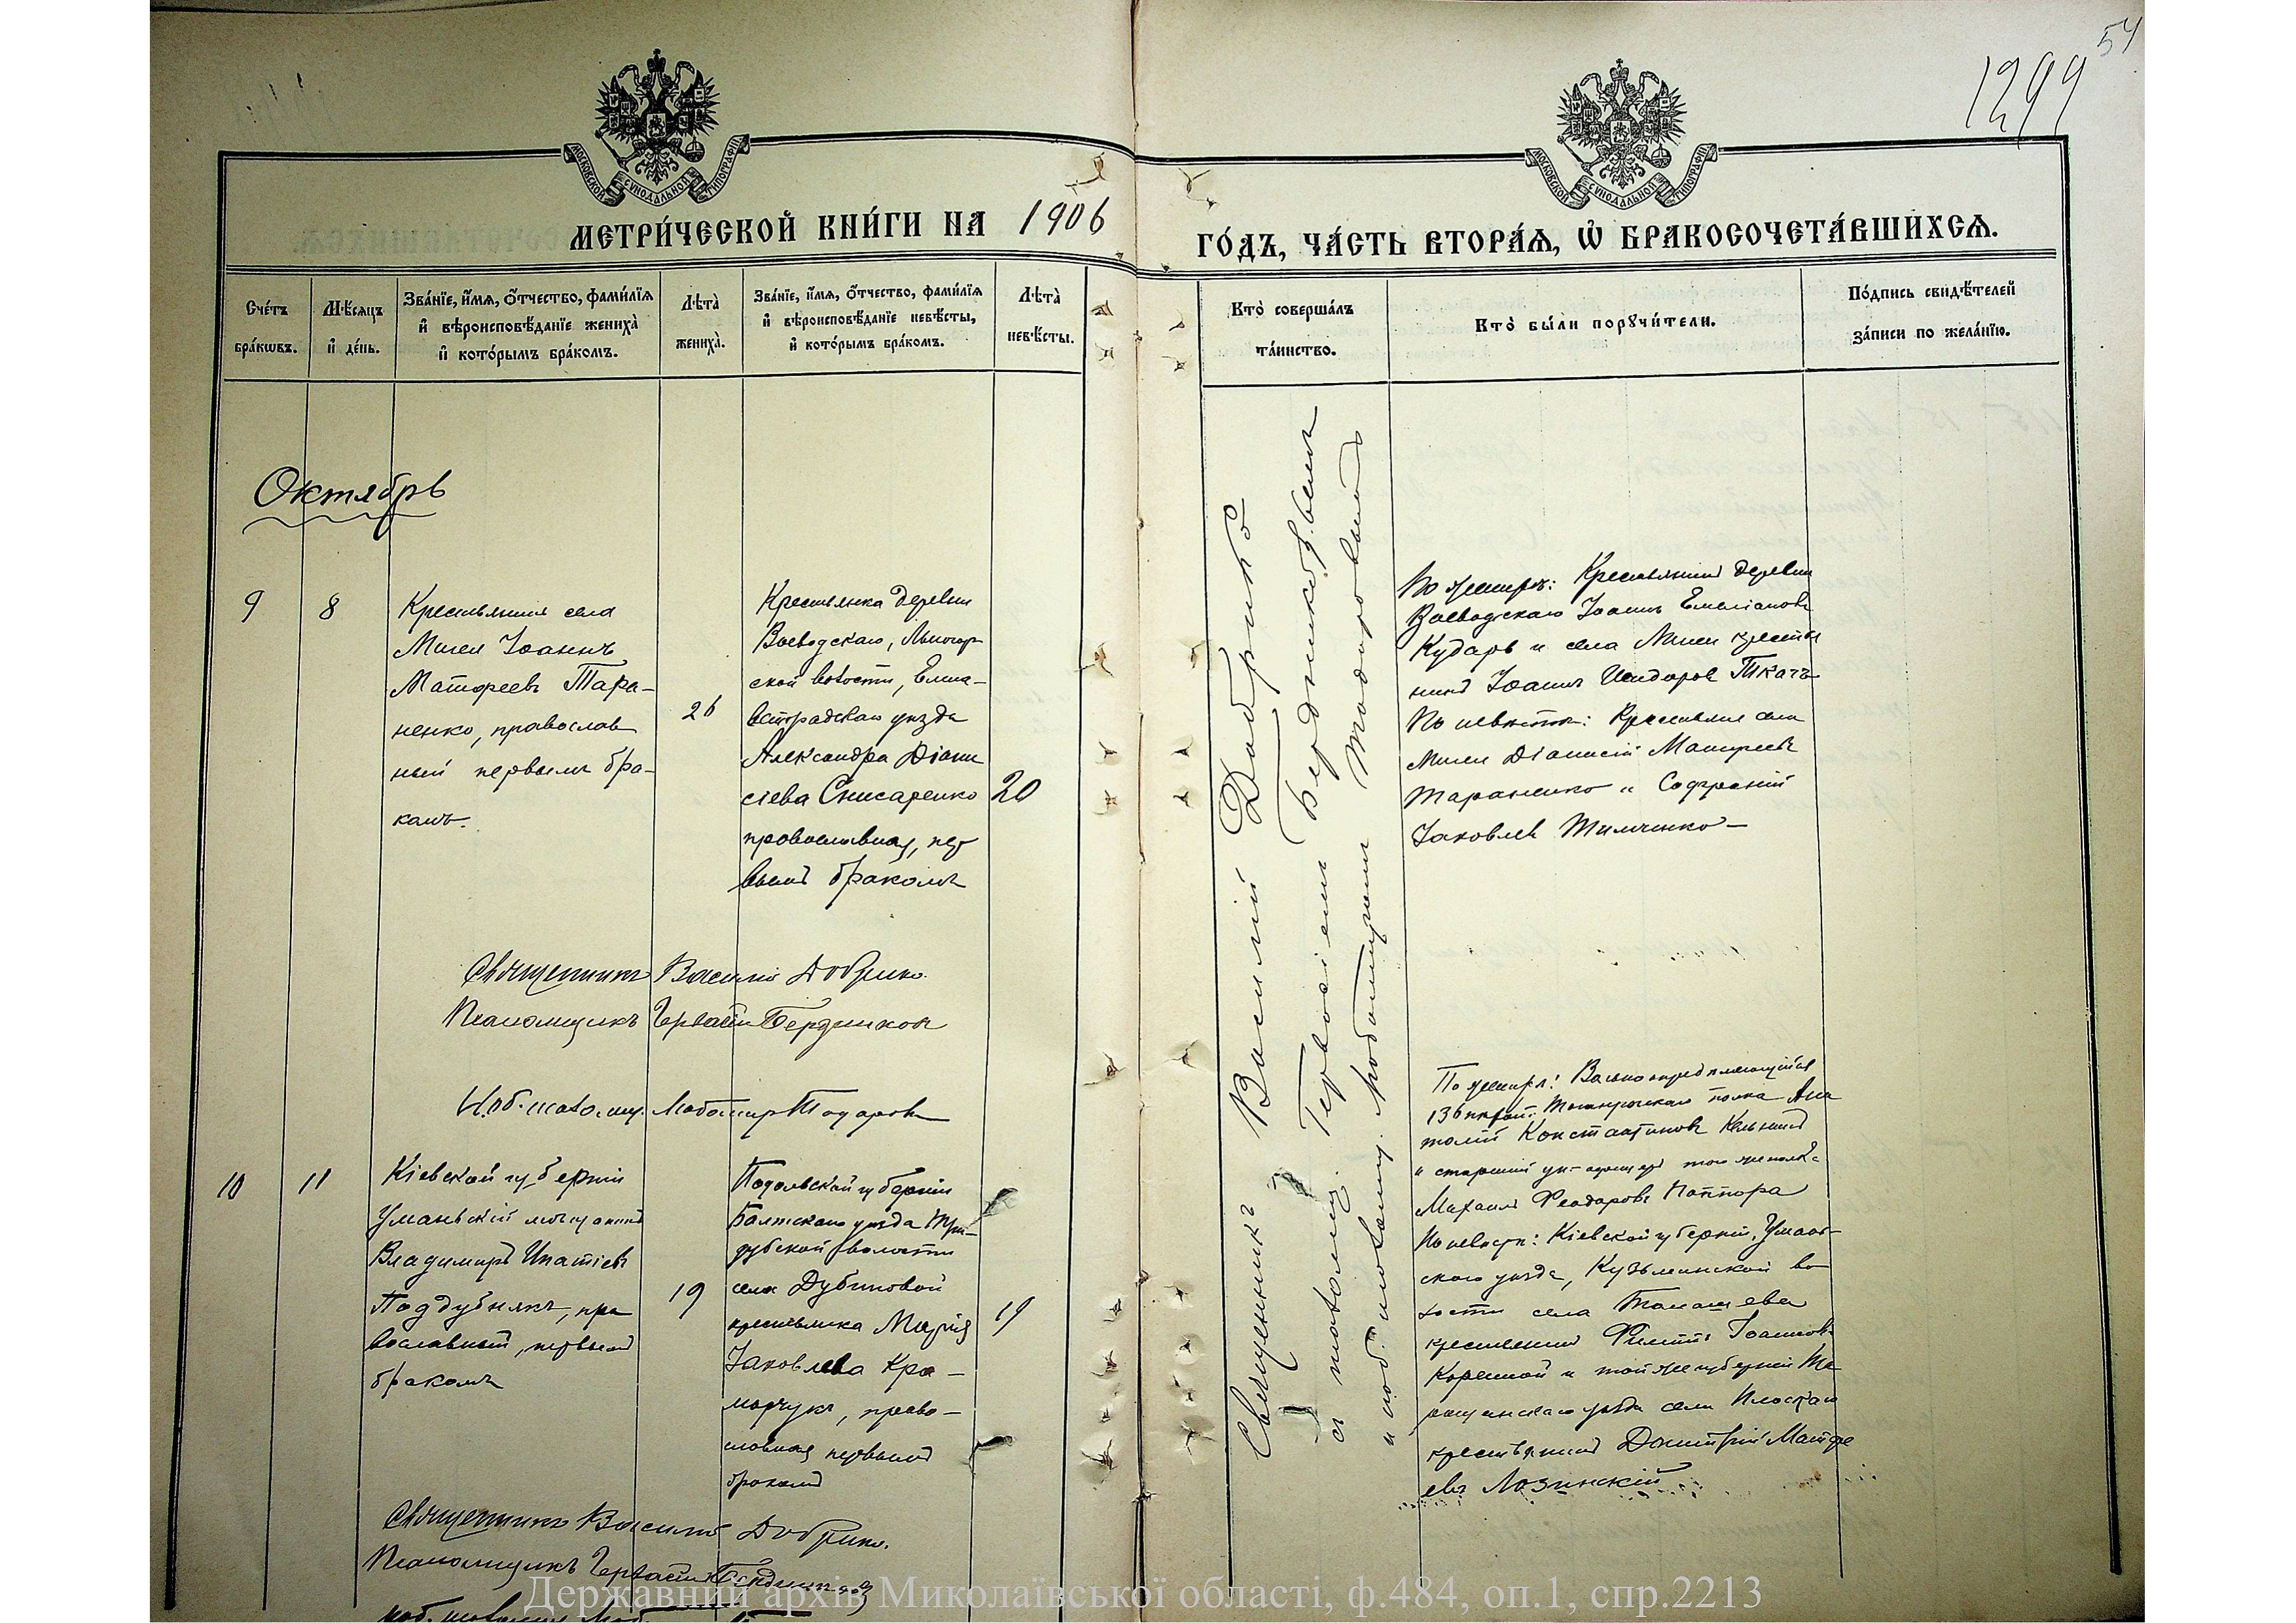 54
1299
МОСКОВСКОЙ СѴНОДАЛЬНОЙ ТИПОГРАФІИ
МОСКОВСКОЙ СѴНОДАЛЬНОЙ ТИПОГРАФІИ
МЕТРИ́ЧЕСКОЙ КНИ́ГИ НА 1906
ГО́ДЪ, ЧА́СТЬ ВТОРА́Ѧ, Ѡ҆ БРАКОСОЧЕТА́ВШИХСѦ.
Сче́тъ
бра́кѡвъ.
Мѣ́сяцъ
и҆ де́нь.
Зва́нїе, и҆́мѧ, ѻ҆́тчество, фами́лїѧ
и҆ вѣроисповѣ́данїе жениха̀
и҆ кото́рымъ бра́комъ.
Лѣ́та̀
жениха̀.
Зва́нїе, и҆́мѧ, ѻ҆́тчество, фами́лїѧ
и҆ вѣроисповѣ́данїе невѣ́сты,
и҆ кото́рымъ бра́комъ.
Лѣ́та̀
невѣ́сты.
Кто̀ соверша́лъ
та́инство.
Кто̀ бы́ли порꙋчи́тели.
По́дпись свидѣ́телей
за́писи по жела́нїю.
Октябрь
9
8
Крестьянинъ села
Мигеи Іоаннъ
Матфеевъ Тара-
ненко, православ
ный первымъ бра-
комъ.
26
Крестьянка деревни
Воеводскаго, Лысогор
ской волости, Елиса-
ветградскаго уезда
Александра Діони
сіева Снисаренко
православная, пер
вымъ бракомъ
20
Священникъ Василій Добрико
съ псаломщ. Гервасіемъ Бердниковымъ
Тодоровымъ
По женихѣ: Крестьянинъ деревни
Воеводскаго Іоаннъ Емеліановъ
Кударь и села Мигеи крестья
нинъ Іоаннъ Исидоров Ткачъ
По невѣстѣ: Крестьянинъ села
Мигеи Діонисій Матфеевъ
Тараненко и Софроній
Іаковлев Тимченко
Священникъ Василій Добрико.
Псаломщикъ Гервасій Бердников
10
11
Кіевской губерніи
Уманьскій мѣщанинъ
Владимиръ Ипатіевъ
Поддубнякъ, пра
вославный, первымъ
бракомъ
19
Подольской губерніи
Балтскаго уезда Три-
дубской волости
села Дубиновой
крестьянка Марія
Іаковлева Кра-
марчукъ, право-
славная первымъ
бракомъ
19
По женихѣ:
136 полка Ана
толій Константиновъ
и старшій ун-офицеръ того же полка
Михаилъ Феодоровъ
По невѣстѣ: Кіевской губерніи, Уман-
скаго уезда, Кузьминской во
лости села
крестьянинъ Филиппъ Іоанновъ
Коренной и той же губерніи Та
ращанскаго уезда села Плоскаго
крестьянинъ Димитрій Матфе
евъ Лозинскій
Священникъ Василій Добрико.
Псаломщикъ Гервасій
Державний архів Миколаївської області, ф.484, оп.1, спр.2213